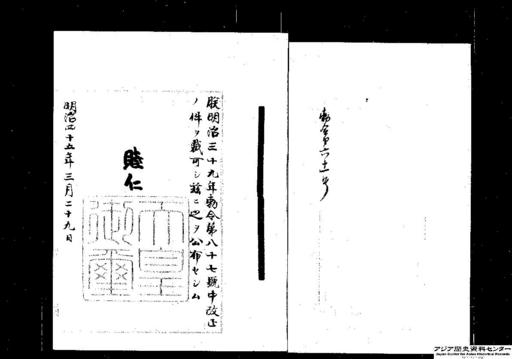 勅令第六十一号
朕明治三十九年勅令第八十七號中改正
ノ件ヲ裁可シ茲ニ之ヲ公布セシム
睦仁
天皇
御璽
明治四十五年三月二十九日
アジア歴史資料センター
Japan Center for Asian Historical Records